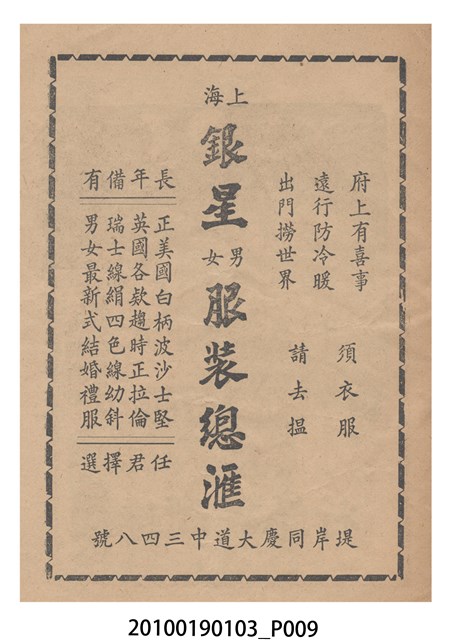 府上有喜事
遠行防冷暖
出門撈世界
須衣服
請去搵
上海
銀星
男女
服裝總滙
長年備有
正美國白柄波沙士堅
英國各欵趨時正拉倫
瑞士線絹四色線幼斜
男女最新式結婚禮服
任君擇選
堤岸同慶大道中三四八號
20100190103_P009